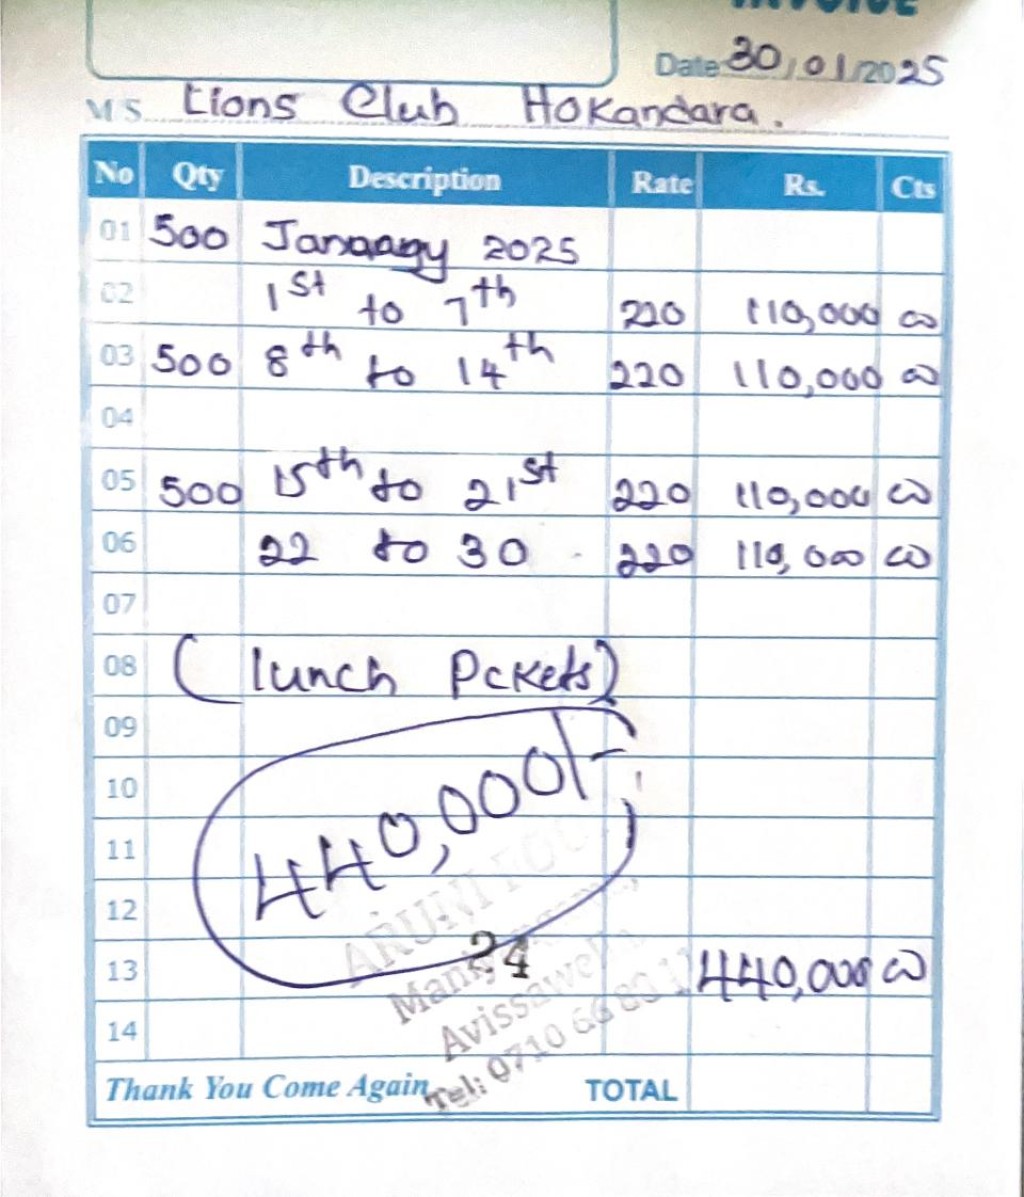 INVOICE
Date 30/01/2025
M/S. Lions Club Hokandara.
No Qty Description Rate Rs. Cts
01 500 January 2025
02 1st to 7th 220 110,000 00
03 500 8th to 14th 220 110,000 00
04
05 500 15th to 21st 220 110,000 00
06 22 to 30 220 110,000 00
07
08 (lunch Pckets)
09
10 440,000/-
11
12 ARUNI
24
13 440,000 00
Avissawella
14
Tel: 0710 66 80
Thank You Come Again TOTAL